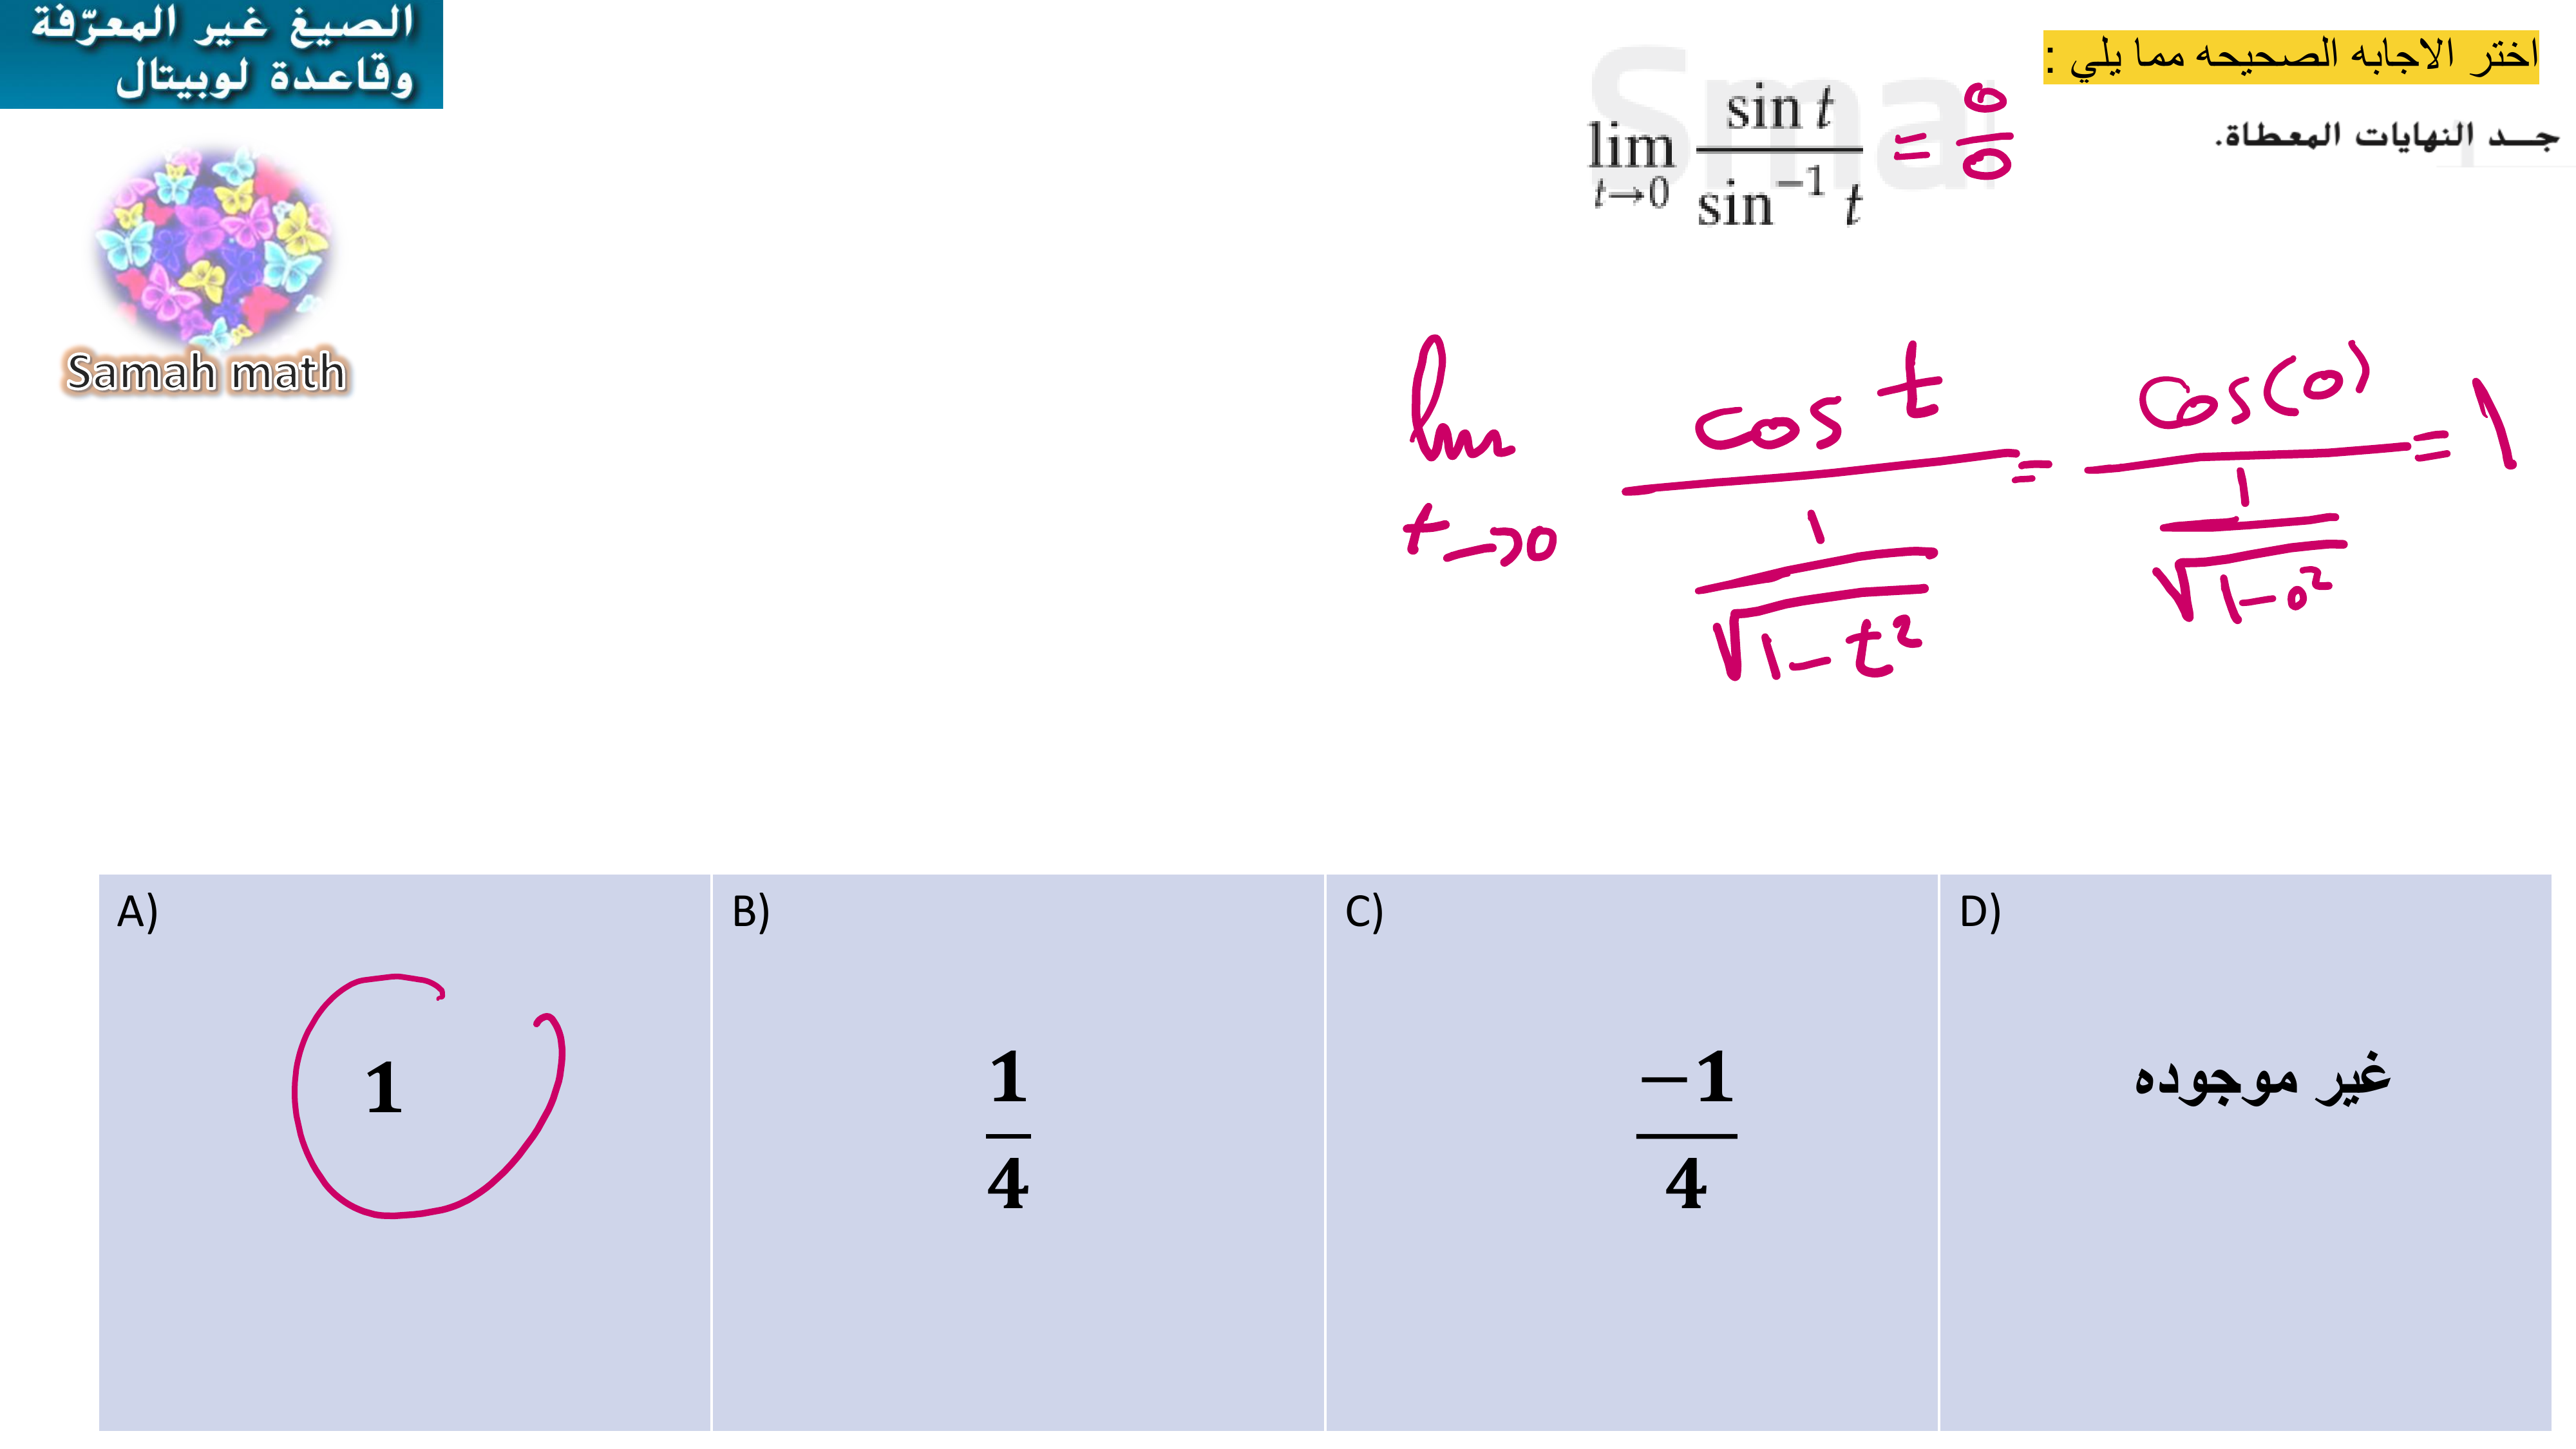 الصيغ غير المعرّفة
وقاعدة لوبيتال
Samah math
اختر الاجابه الصحيحه مما يلي :
جد النهايات المعطاة.
Sma
lim t→0 sin t / sin⁻¹ t = 0/0
lim t→0 cos t / (1/√(1-t²)) = cos(0) / (1/√(1-0²)) = 1
A) 1
B) 1/4
C) −1/4
D) غير موجوده